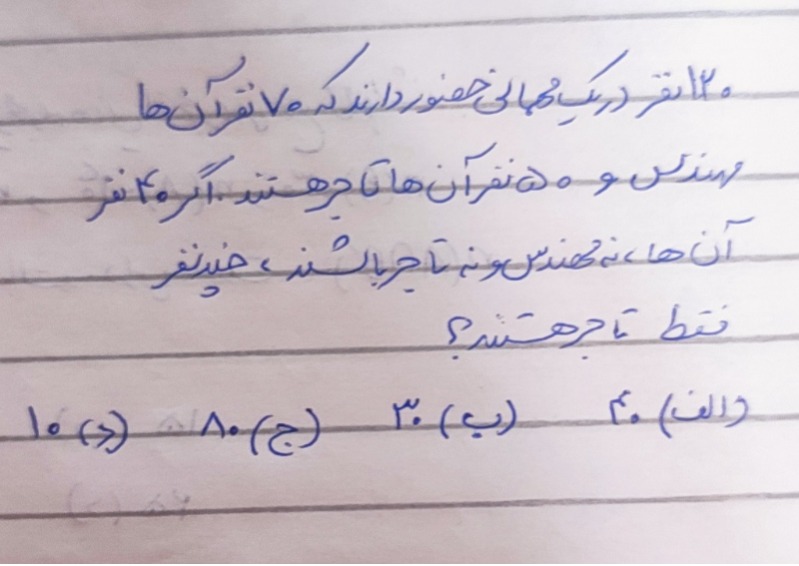 ۱۳۰ نفر در یک مهمانی حضور دارند که ۷۰ نفر آن‌ها
مهندس و ۵۰ نفر آن‌ها تاجر هستند. اگر ۴۰ نفر
آن‌ها، نه مهندس و نه تاجر باشند، چند نفر
فقط تاجر هستند؟
(الف) ۴۰ (ب) ۳۰ (ج) ۸۰ (د) ۱۰